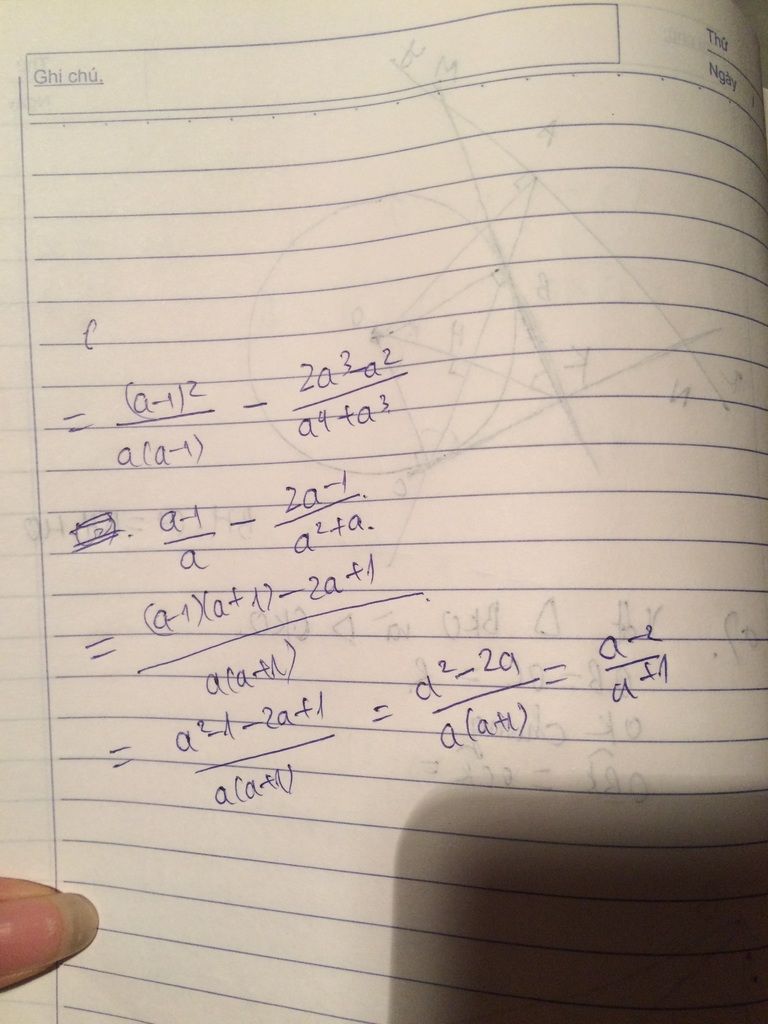 Thứ
Ghi chú.
Ngày
= (a-1)²/a(a-1) - 2a³-a²/a⁴+a³
a-1/a - 2a-1/a²+a.
= (a-1)(a+1)-2a+1/a(a+1)
= a²-1-2a+1/a(a+1) = a²-2a/a(a+1) = a-2/a+1